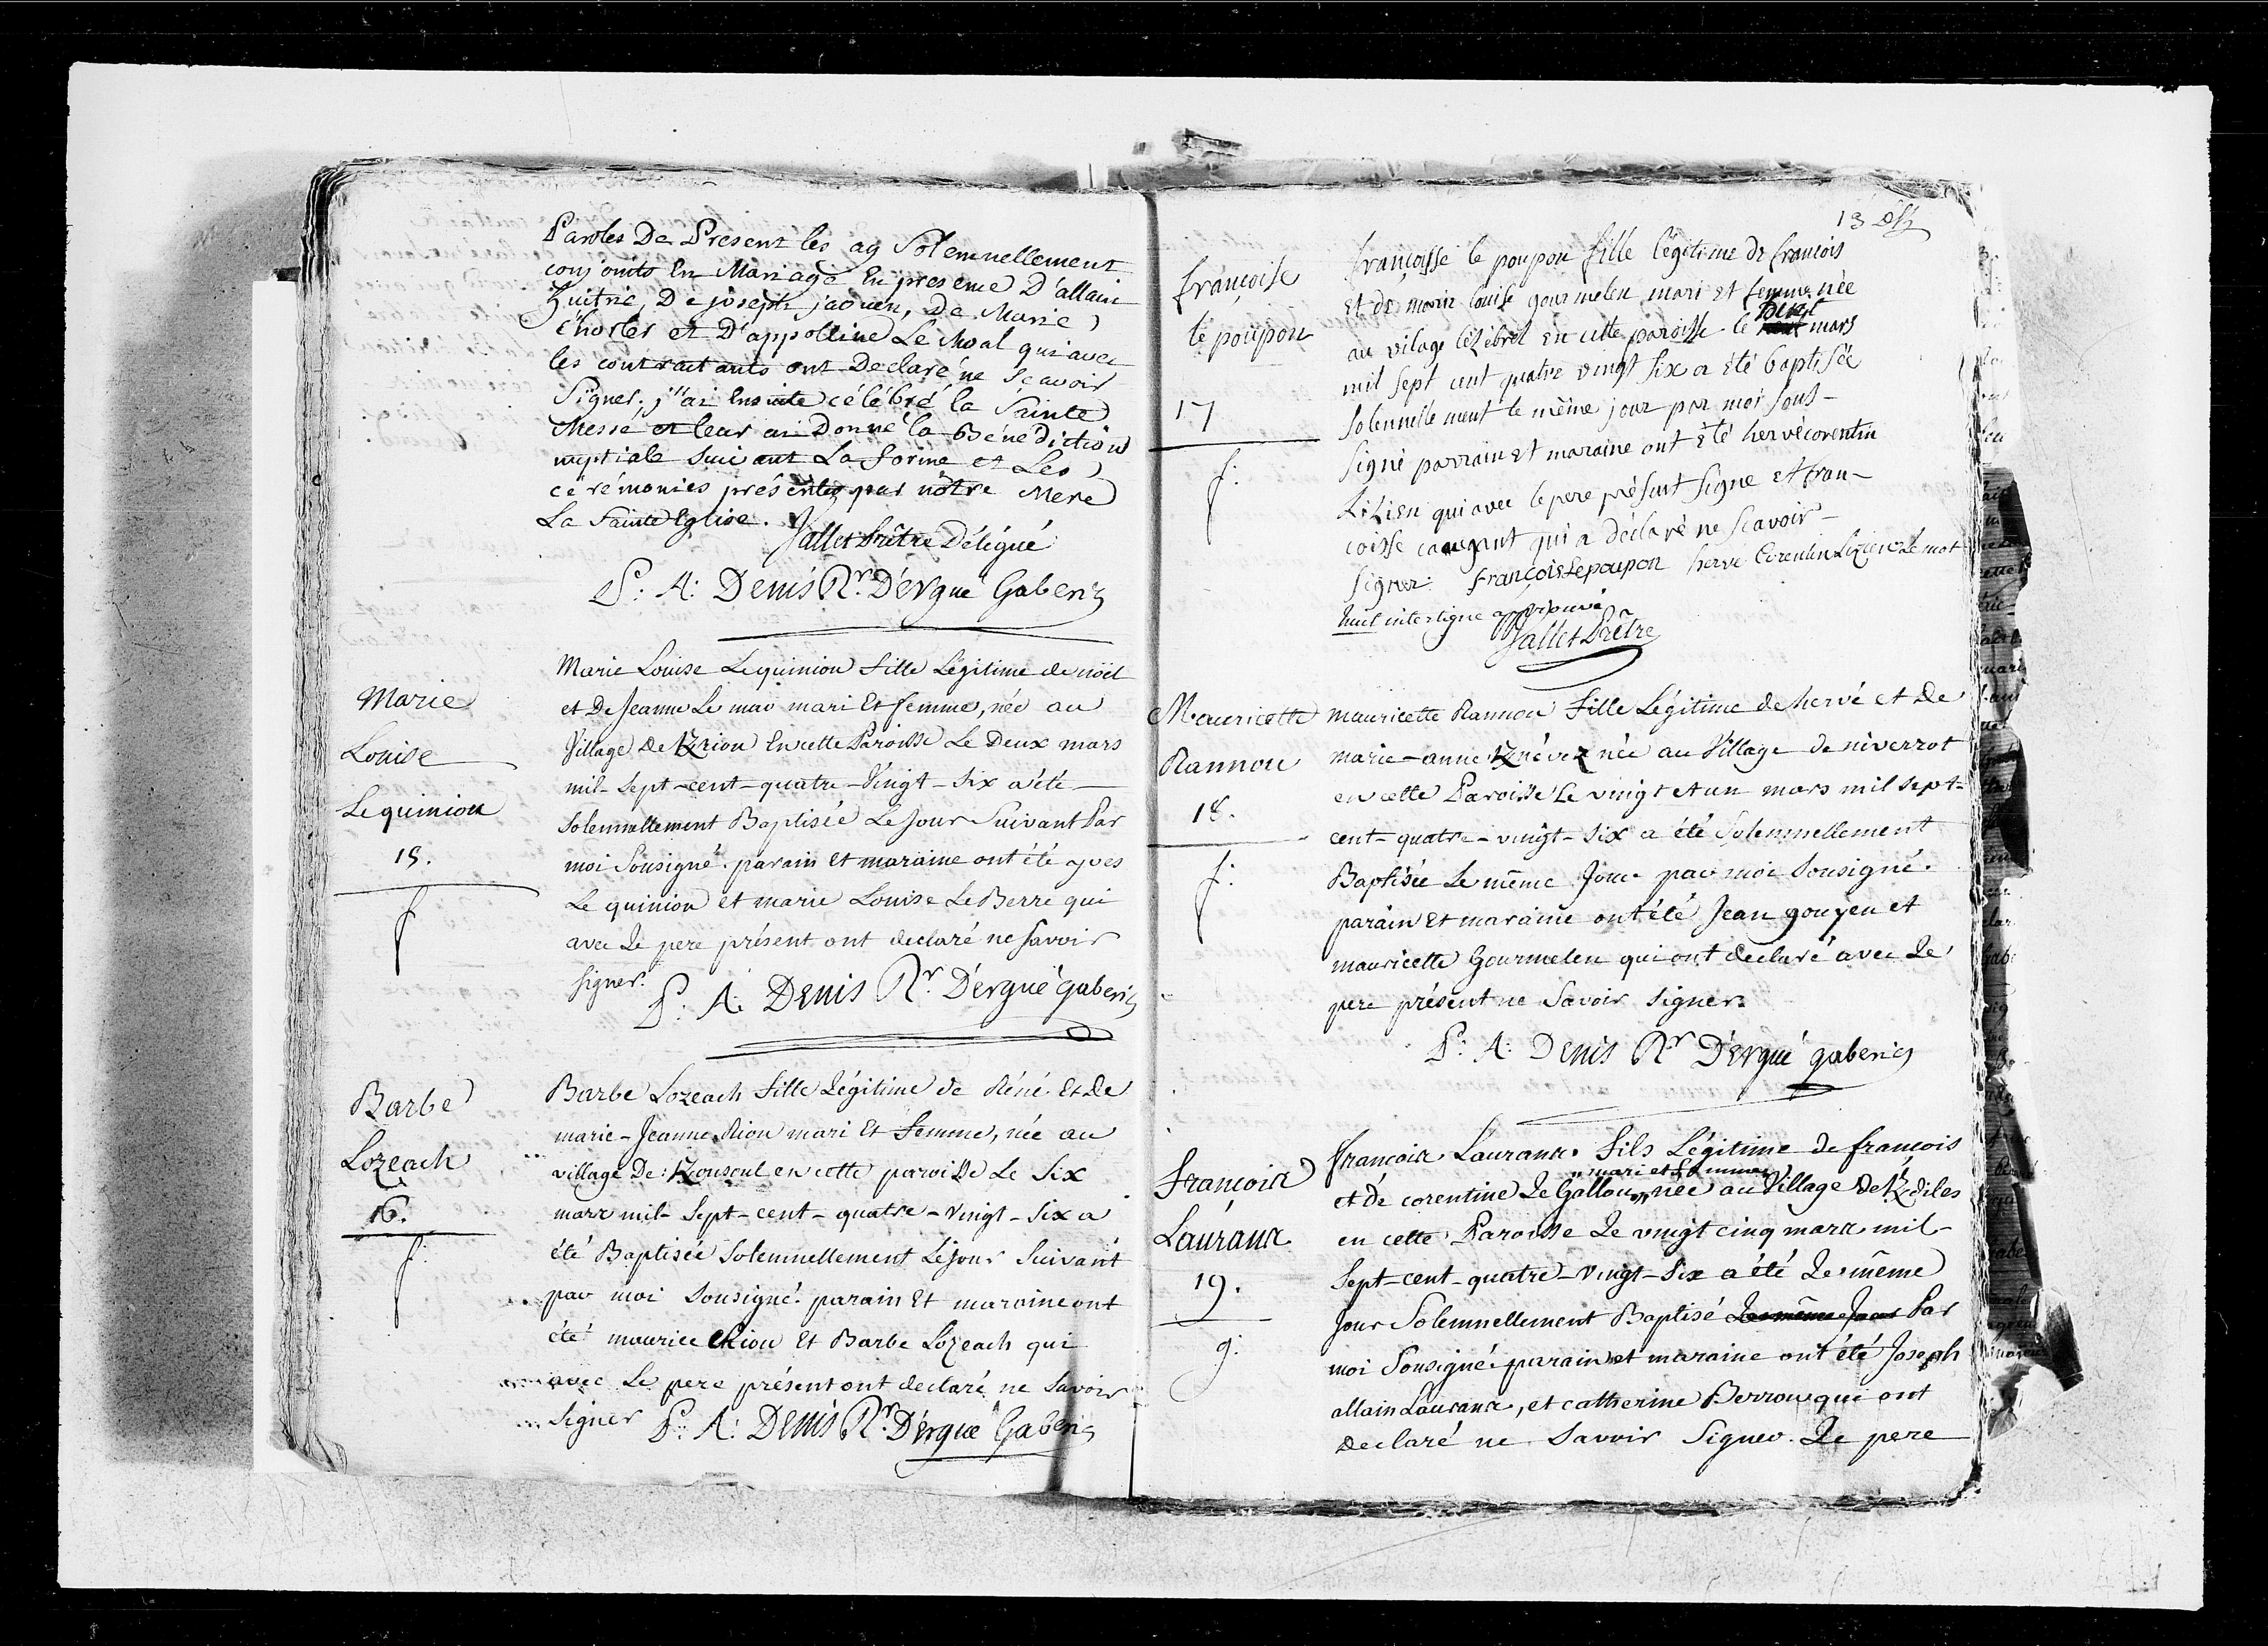 Paroles De Present les ay Solemnellement
conjoints En Mariage En presence D'allain
Huitric, De joseph jaouen, De Marie
Charles et D'appolline Le Moal qui avec
les contractants ont Declaré ne Scavoir
Signer. j'ai Ensuite célébré la Sainte
Messe et leur ai Donné la Bénédiction
nuptiale Suivant La forme et Les
cérémonies présentes par nôtre Mere
La Sainte Eglise.
Jallet Prêtre Délégué
P: A: Denis Rr. D'Ergué Gaberic
Marie
Louise
Le quinion
15.
f
Marie Louise Le quinion Fille Légitime de noël
et De Jeanne Le mao mari Et femme, née au
Village De Kzrion En cette Paroisse Le Deux mars
mil-Sept-cent-quatre-Vingt-Six a été
Solemnellement Baptisée Le Jour Suivant Par
moi Sousigné. parain Et maraine ont été yves
Le quinion et marie Louise Le Berre qui
avec Le pere présent ont declaré ne Savoir
signer.
P: A: Denis Rr. D'ergué gaberic
Barbe
Lozeach
16.
f:
Barbe Lozeach Fille Légitime de Réné Et De
marie-Jeanne Rion mari Et Femme, née au
village De Kzonsoul en cette paroisse Le Six
mars mil-Sept-cent-quatre-Vingt-Six a
été Baptisée Solemnellement Le Jour Suivant
par moi Sousigné. parain Et maraine ont
été maurice Riou Et Barbe Lozeach qui
avec Le pere présent ont declaré ne Savoir
Signer
P: A: Denis Rr. D'ergué Gaberic
13
françoise
le poupon
17
f:
françoisse le poupon fille légitime de francois
Et de marie louise gourmelen mari et femme née
au vilage lézébrel en cette paroisse le huit mars
mil sept cent quatre vingt six a été baptisée
solennellement le même jour par moi sous-
signé parrain et maraine ont été hervé corentin
Lizien qui avec le pere présent signe et fran-
coisse caugant qui a déclaré ne scavoir
signer. françois Lepoupon herve Corentin Lizien Le mot
huit interligne approuvé
Jallet Prêtre
Mauricette
Rannou
18.
f:
mauricette Rannou Fille Légitime de hervé et De
marie-anne Kznévez née au Village de niverrot
en cette Paroisse Le vingt et un mars mil sept-
cent-quatre-vingt-six a été Solemnellement
Baptisée Le même Jour par moi Sousigné.
parain Et maraine ont été Jean gouyen et
mauricette Gourmelen qui ont declaré avec Le
pere présent ne Savoir signer.
P: A: Denis Rr D'Ergué gaberic
François
Laurans
19.
g:
françois Laurans Fils Légitime de francois
et de corentine Le Gallou mari et femme née au Village De Kzdiles
en cette Paroisse Le vingt cinq mars mil-
Sept-cent-quatre-Vingt-Six a été Le même
Jour Solemnellement Baptisé Le même Jour Par
moi Sousigné. parain et maraine ont été Joseph
allain Laurans, et catherine Berrou qui ont
declaré ne Savoir Signer. Le pere